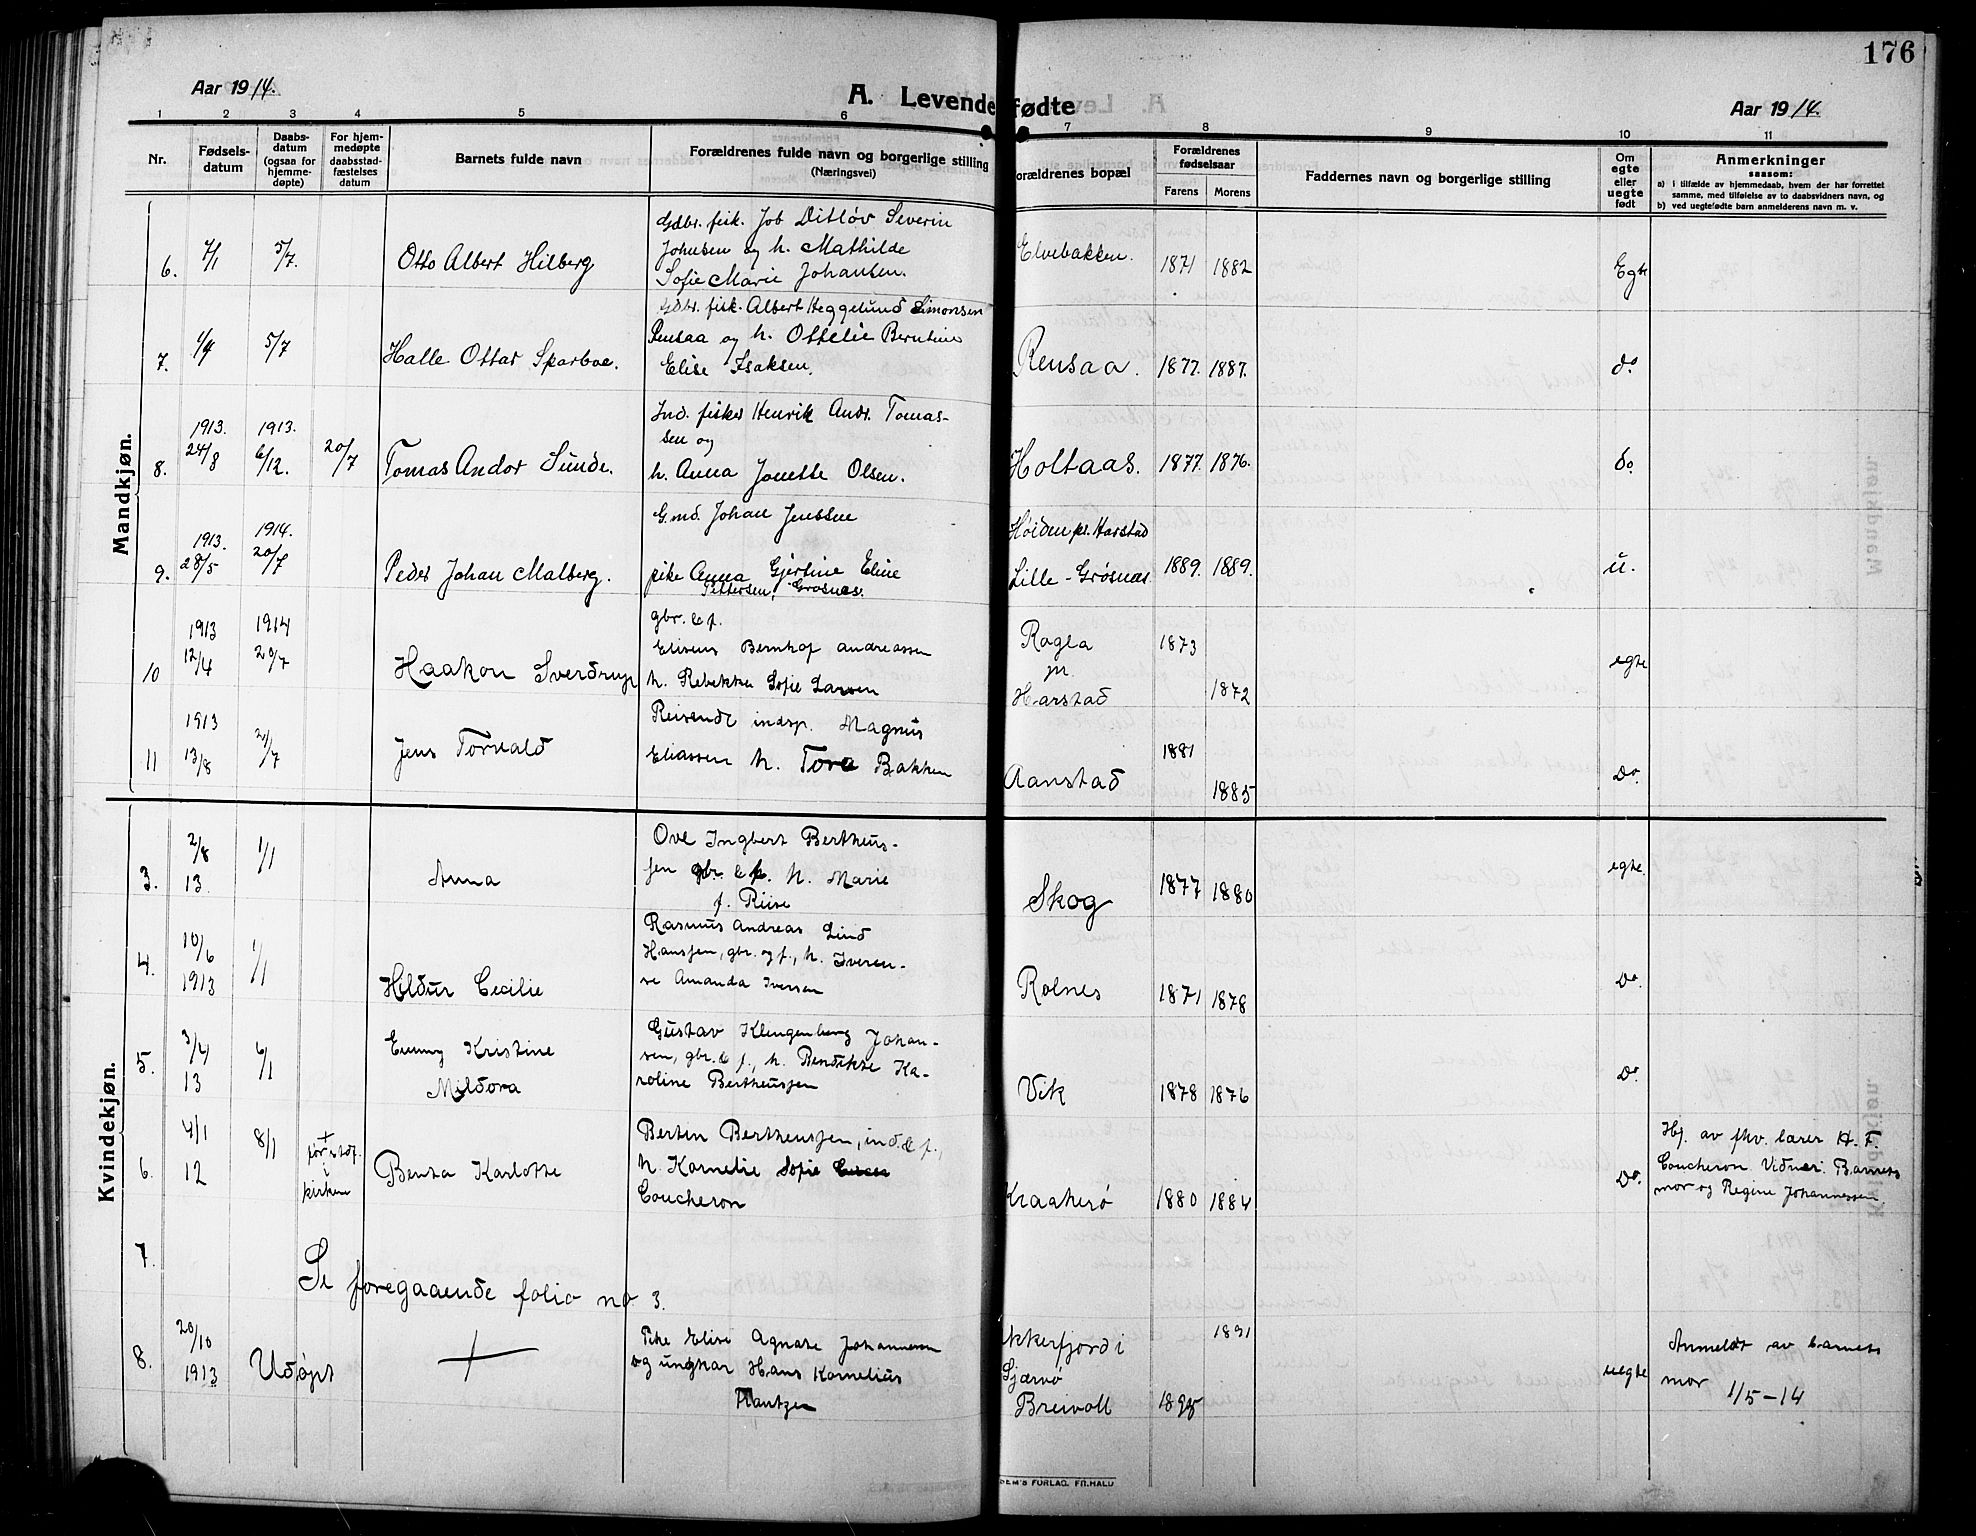 176
Aar 1914.
A. Levendefødte
Aar 1914.
1 2 3 4 5 6 7 8 9 10 11
Nr.
Fødsels-
datum
Daabs-
datum
(ogsaa for
hjemme-
døpte)
For hjem-
medøpte
daabsstad-
fæstelses
datum
Barnets fulde navn
Forældrenes fulde navn og borgerlige stilling
(Næringsvei)
Forældrenes bopæl
Forældrenes
fødselsaar
Farens Morens
Faddernes navn og borgerlige stilling
Om
egte
eller
uegte
født
Anmerkninger
saasom:
a) i tilfælde av hjemmedaab, hvem der har forrettet
samme, med tilføielse av to daabsvidners navn, og
b) ved uegtefødte barn anmelderens navn m. v.
Mandkjøn.
6. 7/1 5/7. Otto Albert Hilberg
Gdbr. fisk. Job Ditløv Severin
Johnsen og h. Mathilde
Sofie Marie Johansen.
Elvebakken. 1871 1882 Egte
7. 1/4 5/7 Halle Ottar Sparboe.
Gdbr. fisk. Albert Heggelund Simonsen
Rensaa og h. Ottelie Berntine
Elise Isaksen.
Rensaa. 1877. 1887. do.
8. 1913. 24/8 1913. 6/12. 20/7 Tomas Andor Sunde.
Ind. fisker Henrik Andr. Tomas-
sen og
h. Anna Jonette Olsen.
Holtaas. 1877. 1876. do.
9. 1913. 28/5 1914. 20/7 Peder Johan Malberg.
G.md. Johan Jenssen
pike Anna Gjertine Eline
Pettersen, Grøsnes.
Høiden pr. Harstad
Lille-Grøsnes. 1889. 1889. u.
10 1913 12/4 1914 20/7 Haakon Sverdrup
gbr. & f.
Eliseus Bernhof Andreassen
h. Rebekka Sofie Larsen
Rogla
pr.
Harstad 1873 1872 egte
11 1913 13/8 21/7 Jens Torvald
Reisende indsp. Magnus
Eliassen h. Tora Bakken
Aanstad 1881 1885 Do.
Kvindekjøn.
3. 2/8 13. 1/1 Anna
Ove Ingbert Bertheus-
sen gbr. & f. h. Marie
f. Reise
Skog 1877 1880 egte.
4. 10/6 1913 1/1 Hildur Cecilie
Rasmus Andreas Lind
Hanssen, gbr. og f., h. Iveren-
se Amanda Iversen
Rolnes 1871 1878 Do.
5. 3/4 13 6/1 Emmy Kristine
Mildora
Gustav Klingenberg Johan-
sen, gbr. & f., h. Bendikte Ka-
roline Bertheussen
Vik 1878 1876 Do.
6. 4/1 12 8/1 + for stdf.
i
kirken
Benta Karlotte
Bertin Bertheussen, ind. & f.,
h. Kornelie Sofie
Coucheron
Kraakerø 1880 1884 Do.
Hj. av fhv. lærer H. F.
Coucheron Vidner: Barnets
mor og Regine Johannessen
7. Se foregaaende folio no 3.
8. 20/10 1913 Udøpt +
Pike Elise Agnate Johannesen
og ungkar Hans Kornelius
Frantzen
kkerfjord i
Sjærvø
Breivoll 1891 uegte
Anmeldt av barnets
mor 1/5-14
DEM'S FORLAG. FR.HALD